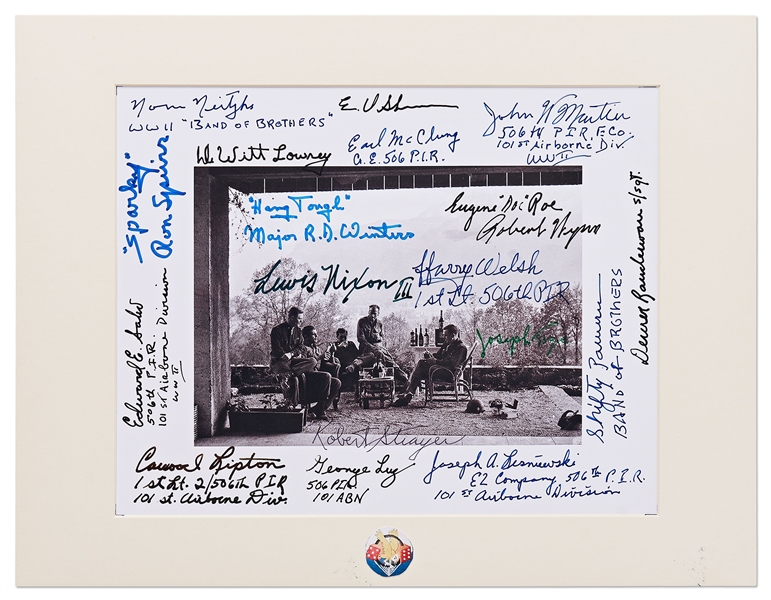 Norm Neitzke
WWII "BAND OF BROTHERS"
E. V Shames
John W. Martin
506th P.I.R. F. Co.
101st Airborne Div.
WWII
DeWitt Lowrey
Earl McClung
Co. E. 506 P.I.R.
"Sparky"
Ron Speirs
"Hang Tough"
Major R. D. Winters
Eugene "Doc" Roe
Robert
s/sgt.
Lewis Nixon III
Harry Welsh
1st Lt. 506th PIR
Joseph
Edward E.
506th P.I.R.
101st Airborne Division
WWII
Shifty Powers
BAND OF BROTHERS
Robert Strayer
Carwood Lipton
1st Lt. 2/506th PIR
101 st. Airborne Div.
George Luz
506 PIR.
101 ABN
Joseph A. Lesniewski
E2 Company 506th P.I.R.
101st Airborne Division